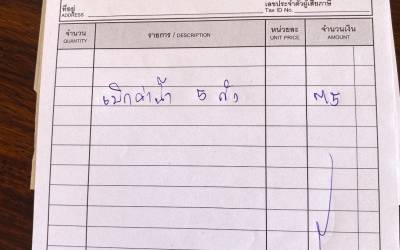 ที่อยู่ เลขประจำตัวผู้เสียภาษี
ADDRESS Tax ID No.
จำนวน รายการ / DESCRIPTION หน่วยละ จำนวนเงิน
QUANTITY UNIT PRICE AMOUNT
เบิกค่าน้ำ 5